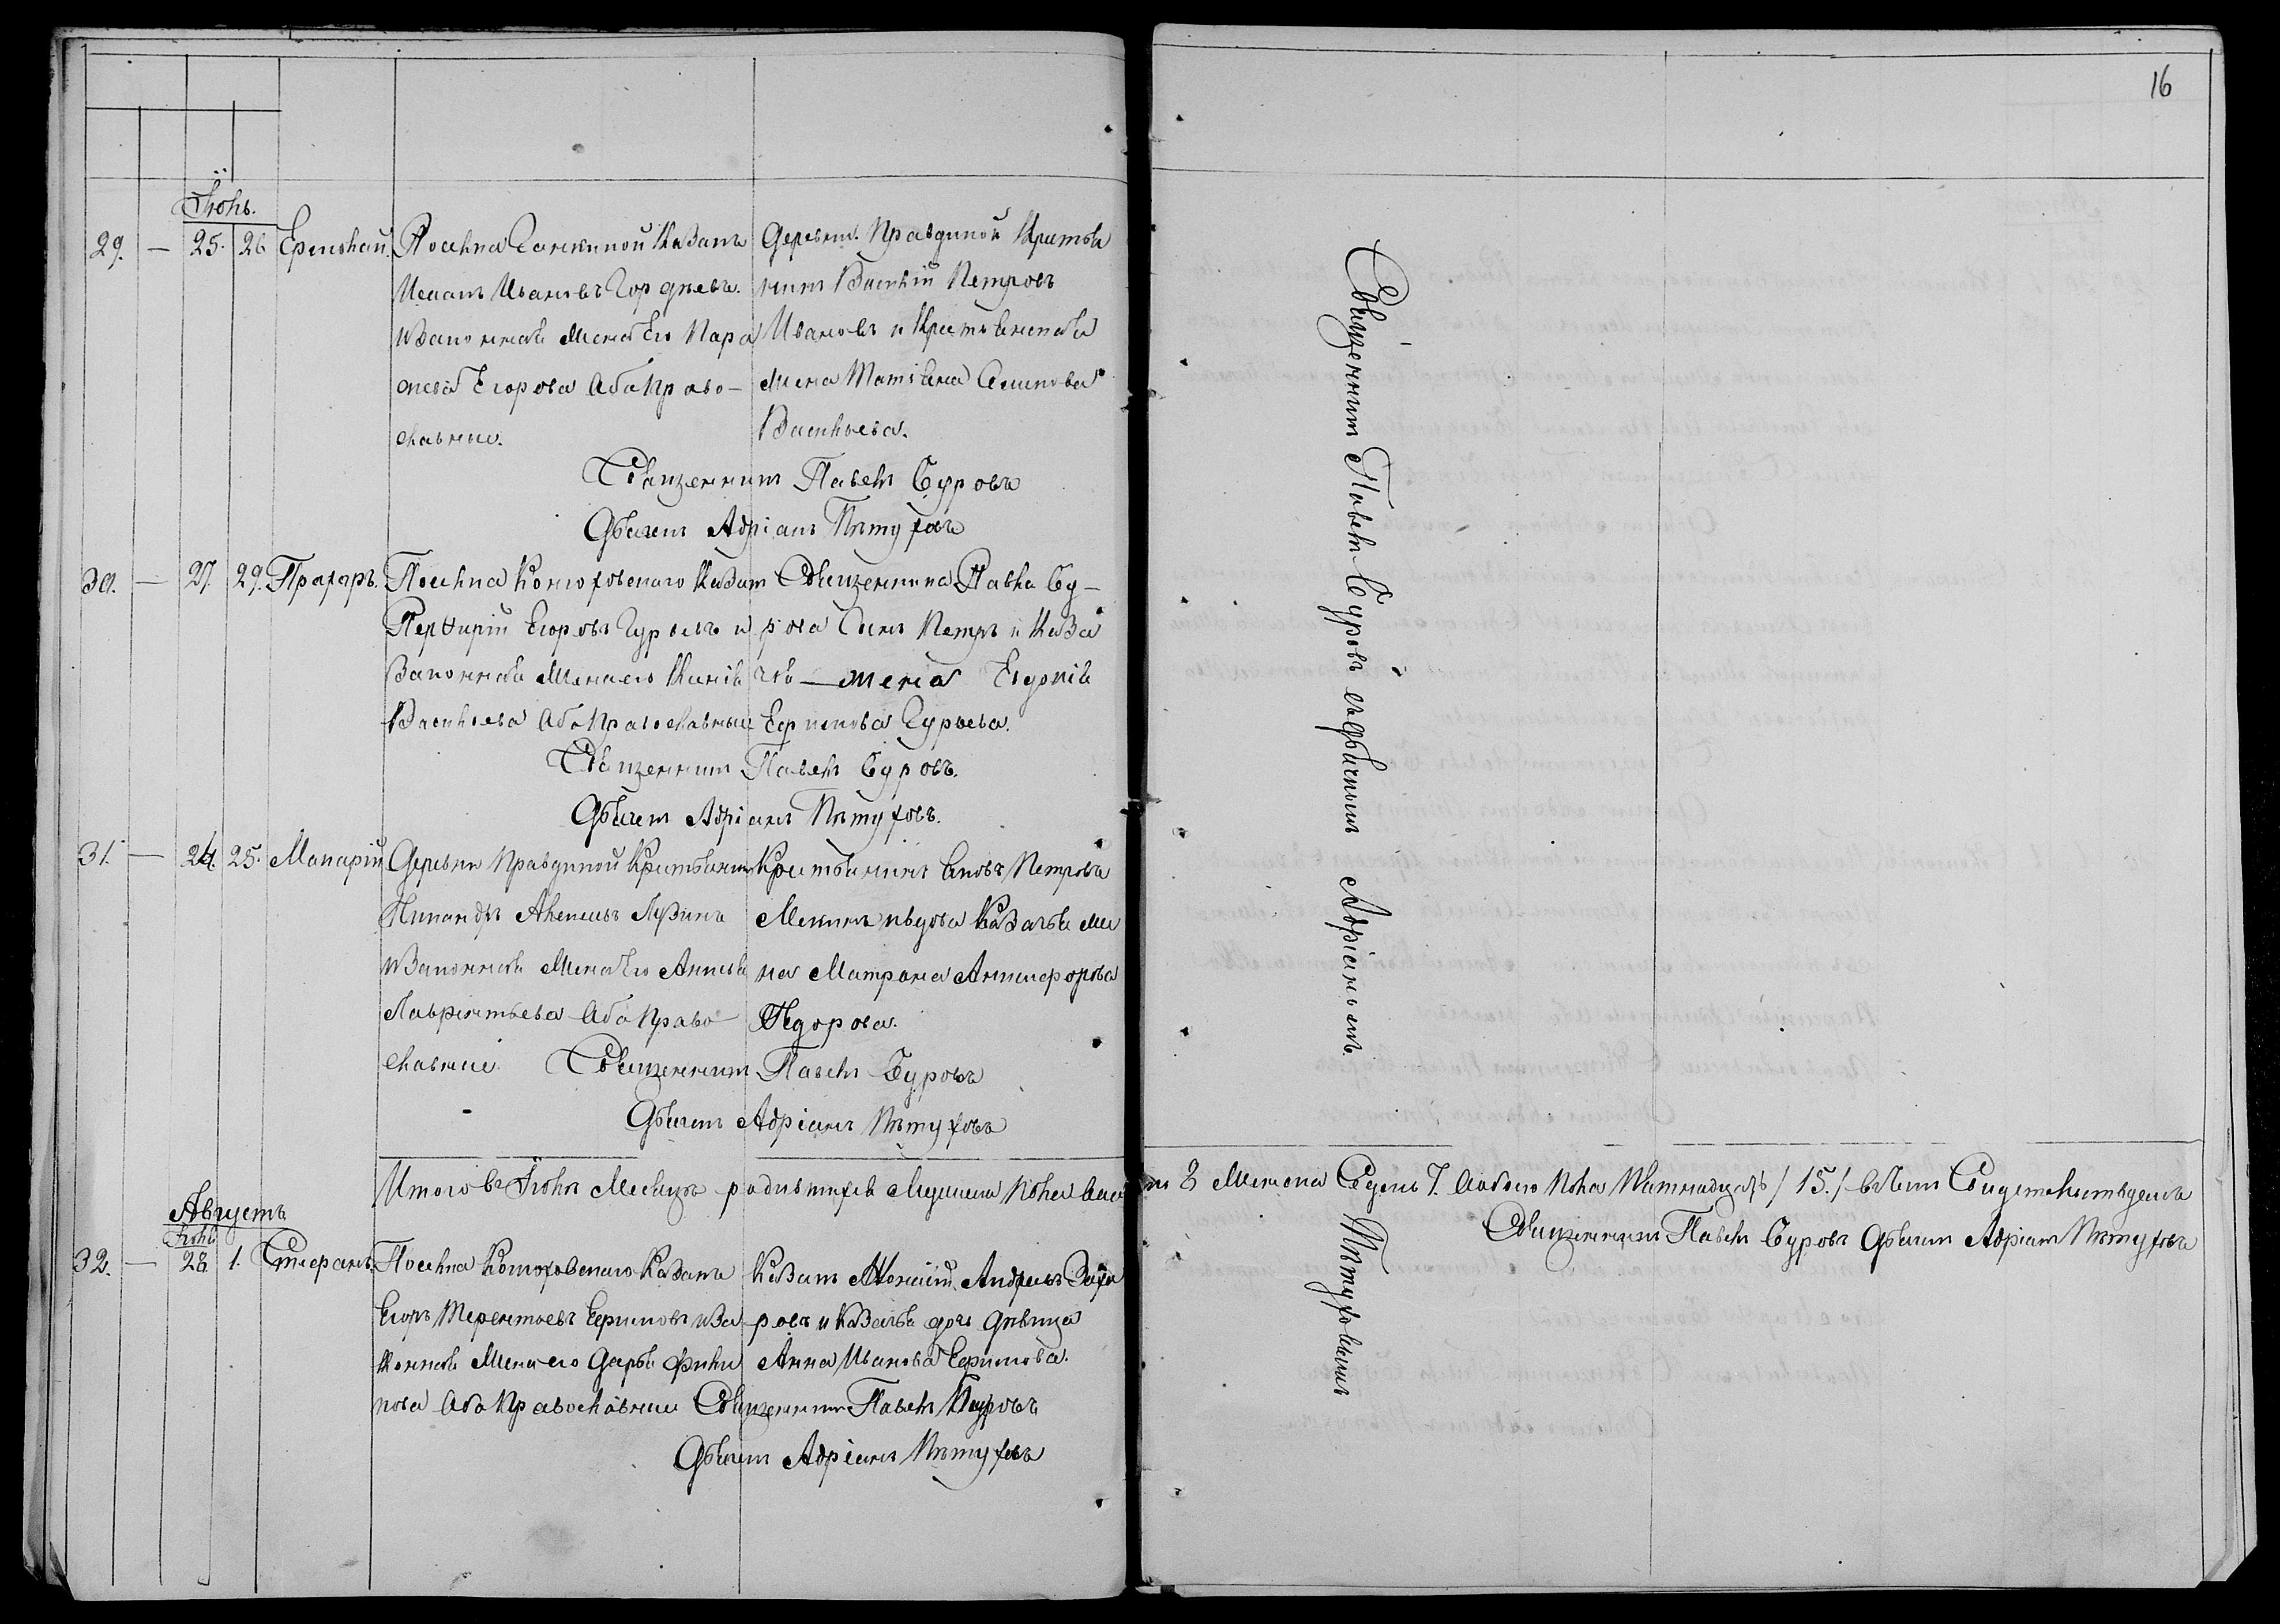 16
Іюнь.
29. — 25. 26 Ермолай. Поселка Сонкиной Казакъ
Иванъ Ивановъ Гордѣевъ.
и Законная Жена Его Пара
скева Егорова Оба Право-
славные.
Деревни Правдиной Крестья
нинъ Василій Петровъ
Ивановъ и Крестьянская
Жена Татіана Семенова
Васильева.
Священникъ Павелъ Буровъ
Дьячекъ Адріанъ Пѣтуховъ
30. — 27. 29. Прохоръ. Поселка Кочюховскаго Казакъ
Перфирій Егоровъ Гурьевъ и
Законная Жена его Ксенія
Васильева Оба Православные
Священника Павла Бу-
рова Сынъ Петръ и Каза
чья — жена Евдокія
Ефимова Гурьева.
Священникъ Павелъ Буровъ.
Дьячекъ Адріанъ Пѣтуховъ.
31. — 24. 25. Макарій Деревни Правдиной Крестьянинъ
Никандръ Алексѣевъ Лузинъ
и Законная Жена Его Анисья
Лаврентьева Оба Право
славные.
Крестьянинъ Яковъ Петровъ
Мекинъ и вдова Казачья же
на Матрона Анисифорова
Федорова.
Священникъ Павелъ Буровъ
Дьячекъ Адріанъ Пѣтуховъ
Итого въ Іюлѣ Месяцѣ родившихся Мужеска пола восемь 8 Женска Седмь 7. Обоего пола Пятнадцать / 15. / въ чемъ Свидетельствуемъ
Священникъ Павелъ Буровъ Дьячекъ Адріанъ Пѣтуховъ
Августъ
Іюль
32. — 28. 1. Стефанъ. Поселка Кочюховскаго Казакъ
Егоръ Терентьевъ Ефимовъ и За
конная Жена его Дарья Фили
пова Оба Православные
Казакъ Андреевъ Заха
ровъ и Казачья дочь Девица
Анна Иванова Ефимова.
Священникъ Павелъ Буровъ
Дьячекъ Адріанъ Пѣтуховъ
Священникъ Павелъ Буровъ съ Дьячкомъ Адріаномъ Пѣтуховымъ